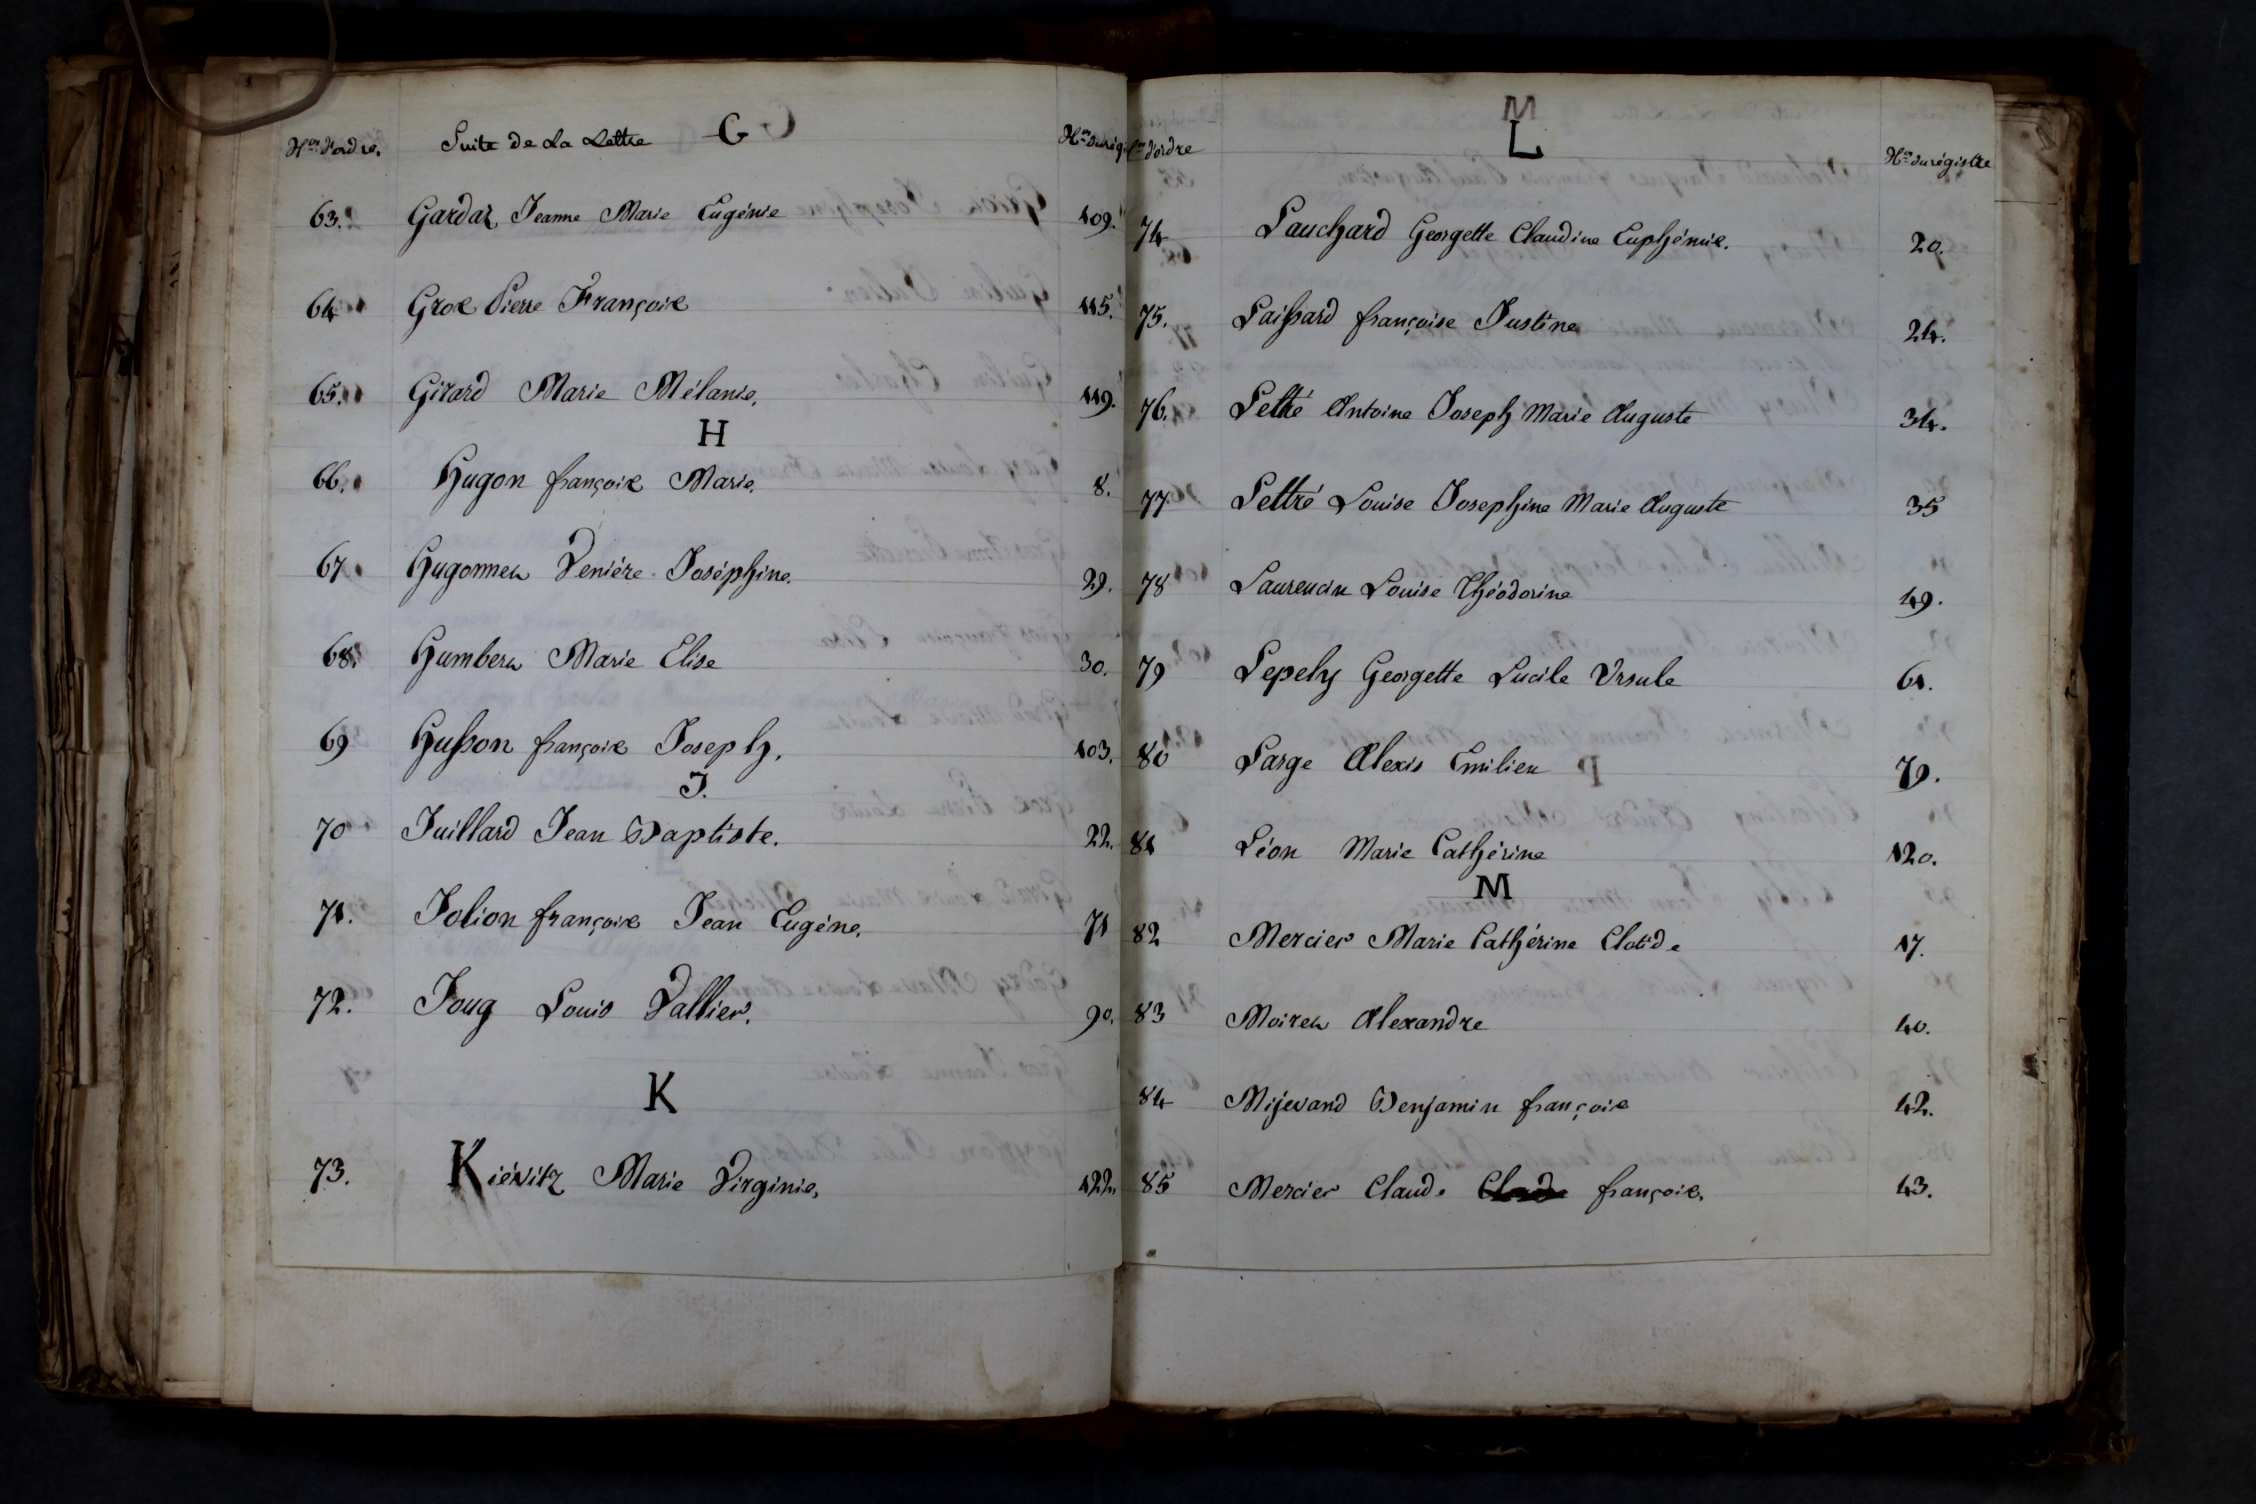 Nos d'ordre. Suite de la Lettre G Nos du rég.
63. Gardaz Jeanne Marie Eugénie 109.
64 Gros Pierre François 115.
65. Girard Marie Mélanie. 119.
H
66. Hugon françois Marie. 8.
67 Hugonnet Venière Joséphine. 29.
68. Humbert Marie Elise 30.
69 Husson françois Joseph. 103.
J.
70 Juillard Jean Baptiste. 22.
71. Jolion françois Jean Eugéne. 71
72. Joug Louis Vallier. 90.
K
73. Kiévitz Marie Virginie. 122.
M
L
Nos d'ordre Nos du régistre
74 Lauchard Georgette Claudine Euphémie. 20.
75. Laissard françoise Justine 24.
76. Lettré Antoine Joseph Marie Auguste 34.
77 Lettré Louise Josephine Marie Auguste 35
78 Laurencin Louise Théodorine 49.
79 Lepely Georgette Lucile Ursule 61.
80 Large Alexis Emilien 79.
81 Léon Marie Cathérine 120.
M
82 Mercier Marie Cathérine Clotide 17.
83 Moiret Alexandre 40.
84 Mijevand Benjamin françois 42.
85 Mercier Claude françois. 43.